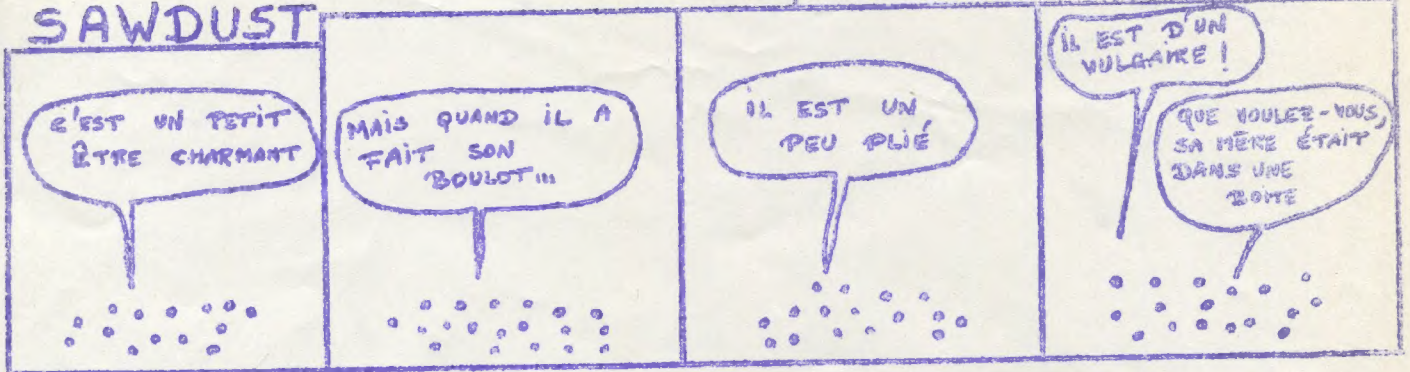 SAWDUST
C'EST UN PETIT
ÊTRE CHARMANT
MAIS QUAND IL A
FAIT SON
BOULOT...
IL EST UN
PEU PLIÉ
IL EST D'UN
VULGAIRE !
QUE VOULEZ-VOUS,
SA MÈRE ÉTAIT
DANS UNE
BOITE